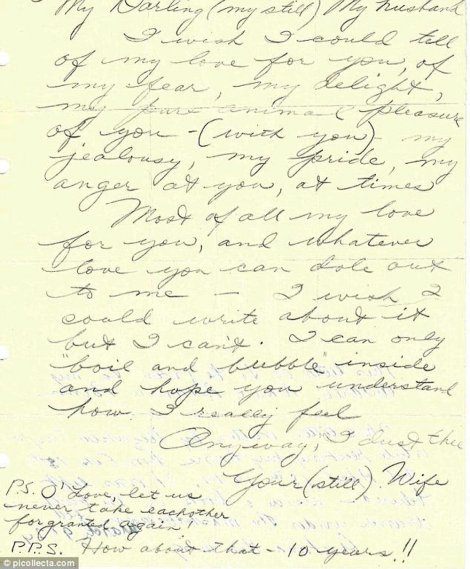 My Darling (my still) My husband
I wish I could tell
of my love for you, of
my fear, my delight,
my pure animal pleasure
of you - (with you) - my
jealousy, my pride, my
anger at you, at times
Most of all my love
for you, and whatever
love you can dole out
to me - I wish I
could write about it
but I can't. I can only
"boil and bubble" inside
and hope you understand
how I really feel
Anyway, I lust thee
Your (still) Wife
P.S. O love, let us
never take eachother
for granted again
P.P.S. How about that - 10 years!!
© picollecta.com